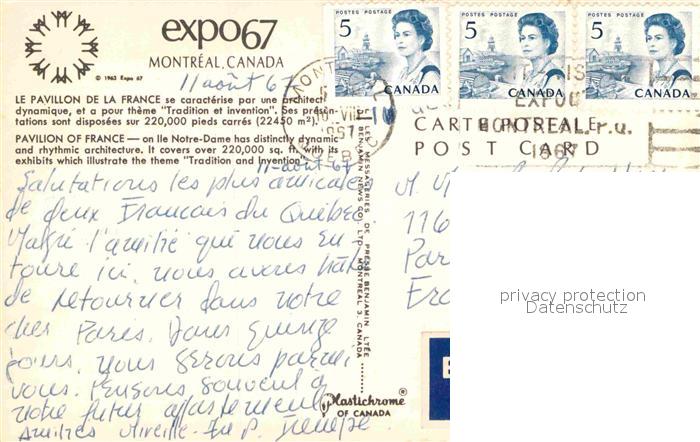 expo67
MONTRÉAL, CANADA
© 1963 Expo 67
11 août 67
LE PAVILLON DE LA FRANCE se caractérise par une architect
dynamique, et a pour thème "Tradition et invention". Ses présen-
tations sont disposées sur 220,000 pieds carrés (22450 m²).
PAVILION OF FRANCE — on Ile Notre-Dame has distinctly dynamic
and rhythmic architecture. It covers over 220,000 sq. ft. with its
exhibits which illustrate the theme "Tradition and Invention".
11-août 67
Salutations les plus amicales
de deux Français du Québec
Malgré l'amitié que nous en
toure ici, nous avons hâte
de retourner dans notre
cher Paris. Dans quinze
jours, nous serons parmi
vous. Pensons souvent à
votre futur appartement
Amitiés Mireille
POSTES POSTAGE
5
CANADA
POSTES POSTAGE
5
CANADA
POSTES POSTAGE
5
CANADA
MONTREAL P.Q.
1967
CARTE POSTALE
POST CARD
LES MESSAGERIES DE PRESSE BENJAMIN LTÉE
BENJAMIN NEWS CO. LTD. MONTREAL 3, CANADA
M.
116
Par
Fra
Plastichrome®
OF CANADA
privacy protection
Datenschutz